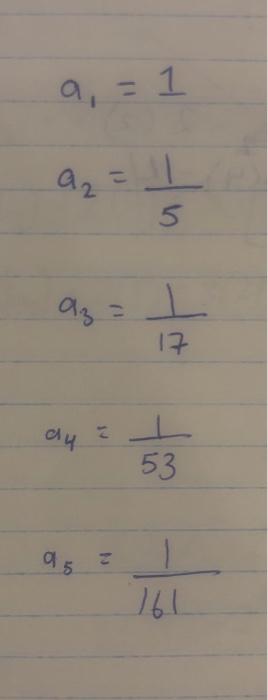 a₁ = 1
a₂ = 1/5
a₃ = 1/17
a₄ = 1/53
a₅ = 1/161